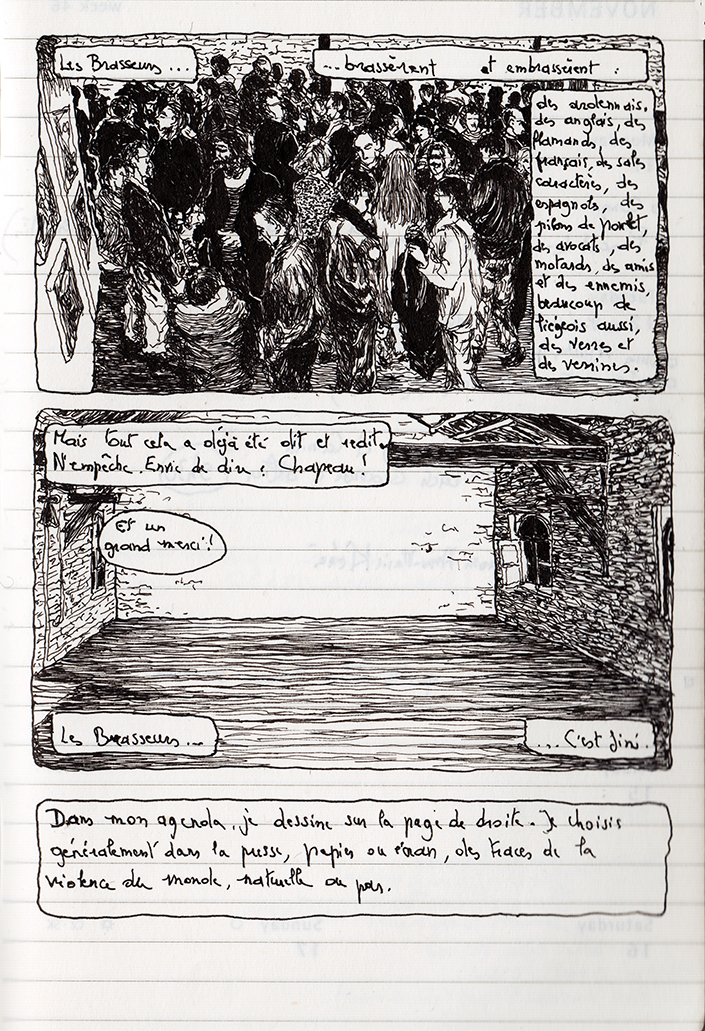 Les Brasseurs...
...brassèrent et embrassèrent :
des ardennais,
des anglais, des
flamands, des
français, de sales
caractères, des
espagnols, des
piliers de
des avocats, des
motards, des amis
et des ennemis,
beaucoup de
liégeois aussi,
des verres et
des vernires.
Mais tout cela a déjà été dit et redit.
N'empêche. Envie de dire : Chapeau !
Et un
grand merci !
Les Brasseurs...
... C'est fini.
Dans mon agenda, je dessine sur la page de droite. Je choisis
généralement dans la presse, papier ou écran, des traces de la
violence du monde, naturelle ou pas.
NOVEMBER
week 46
Saturday
16
Sunday
17
15